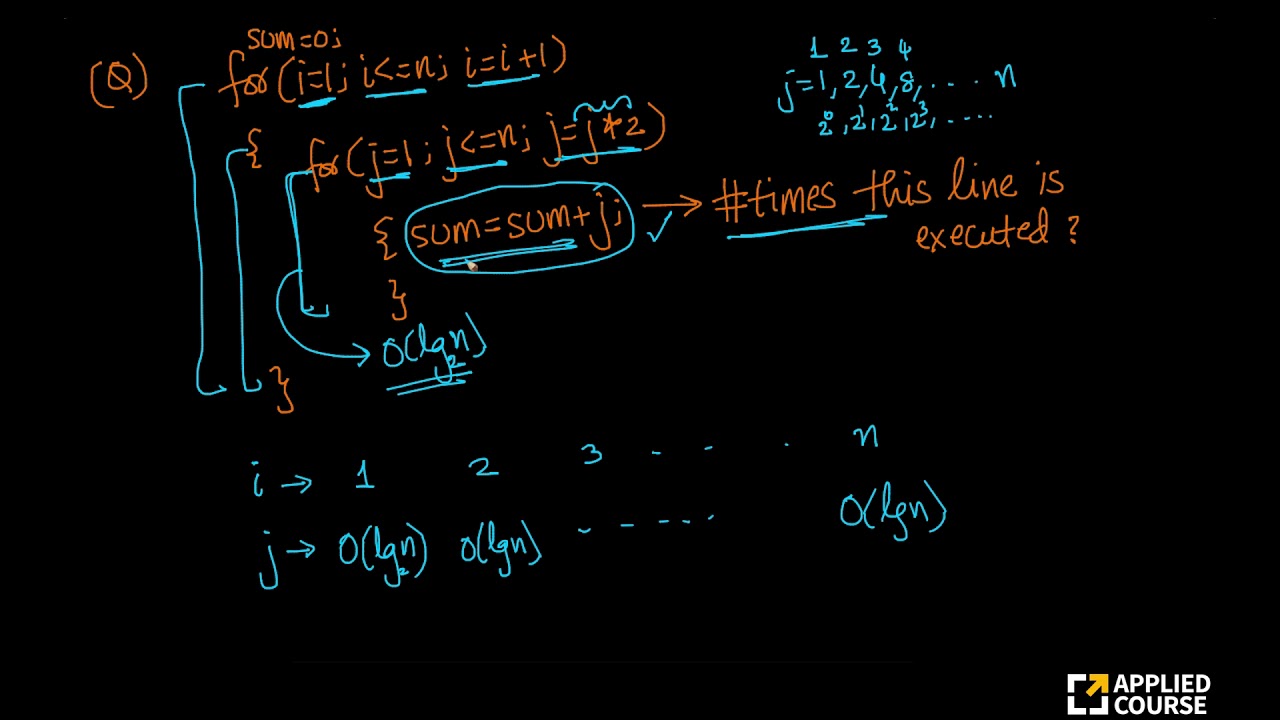 sum=0;
(Q) for(i=1; i<=n; i=i+1)
{ for(j=1; j<=n; j=j*2)
{ sum=sum+j; ✓ → #times this line is
executed?
}
O(lg₂n)
}
1 2 3 4
j=1,2,4,8,.... n
2⁰,2¹,2²,2³,....
i → 1 2 3 - - . n
j → O(lg₂n) O(lgn) - - - - . O(lgn)
APPLIED
COURSE